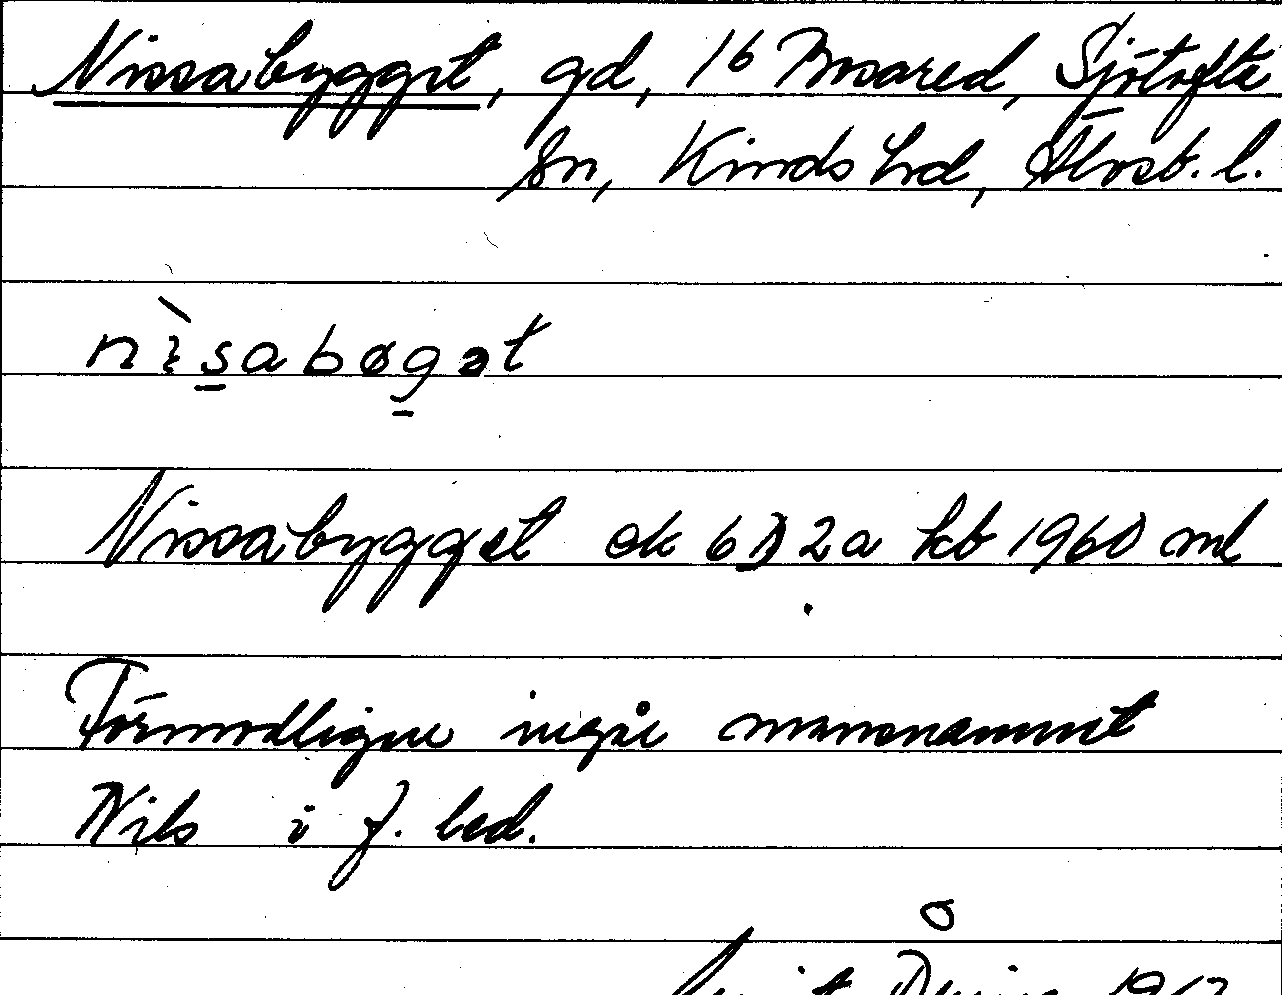 Nissabygget, gd, 16 Mosared, Sjötofta
sn, Kinds hd, Älvsb. l.
nìsabøgət
Nissabygget ek 6D2a kb 1960 ml
Förmodligen ingår mansnamnet
Nils i f. led.